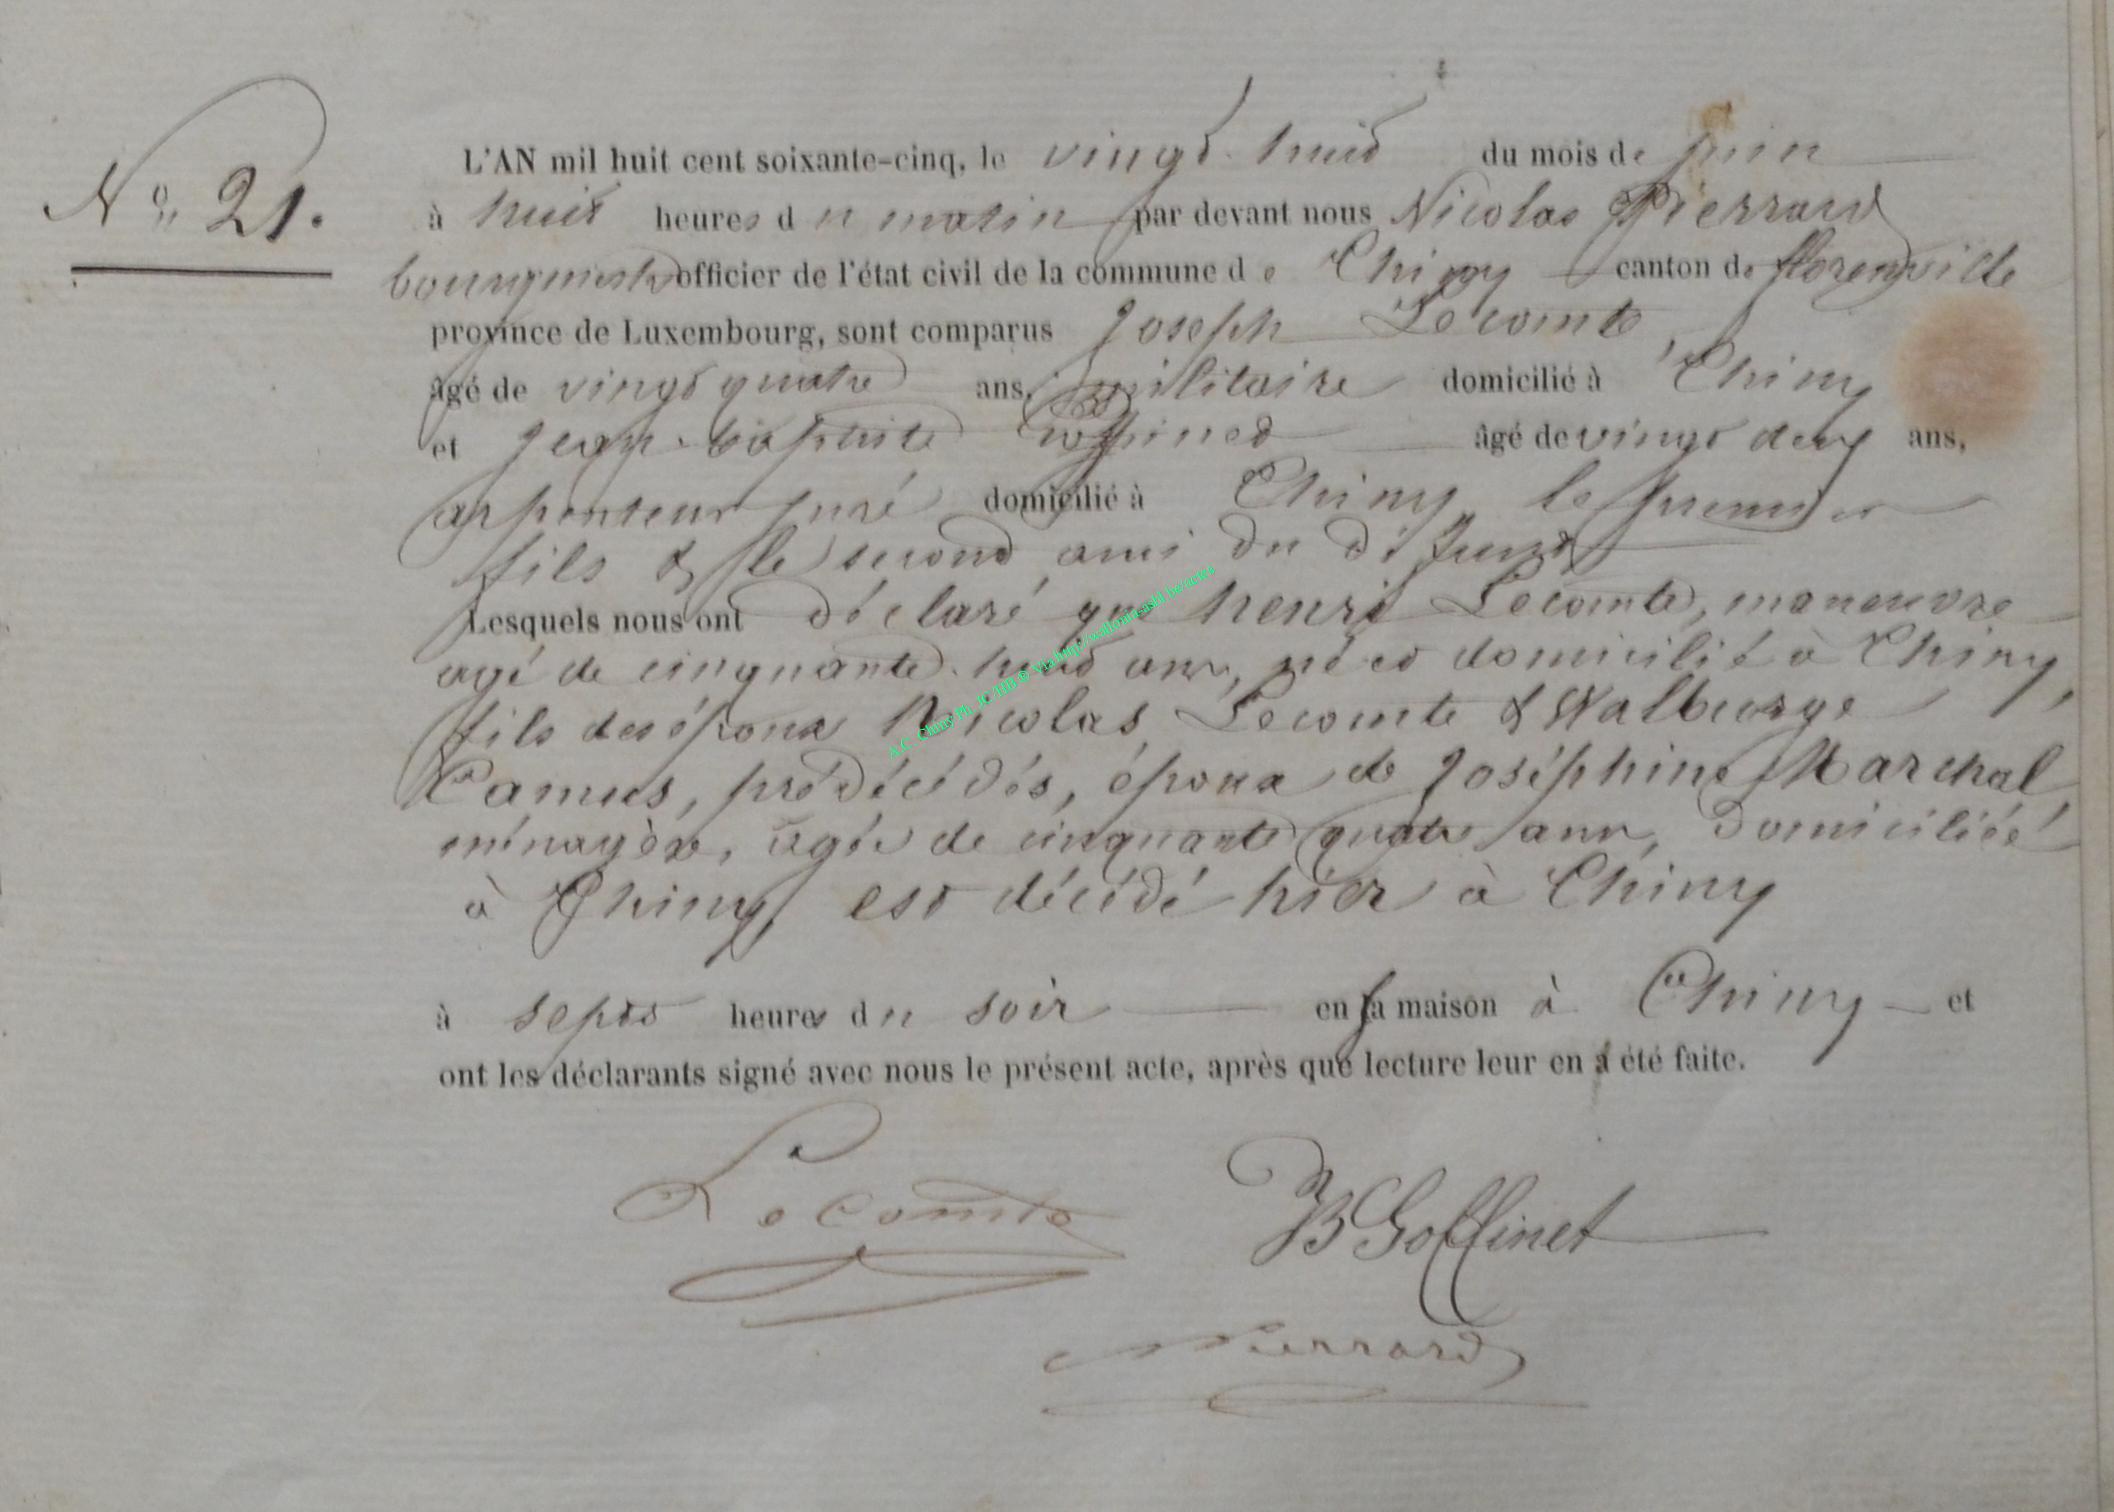 N° 21.
L'AN mil huit cent soixante-cinq, le vingt-huit du mois de juin
à huit heures du matin par devant nous Nicolas Pierrard
bourgmestre officier de l'état civil de la commune de Chiny canton de florenville
province de Luxembourg, sont comparus Joseph Lecomte,
âgé de vingt quatre ans, militaire domicilié à Chiny
et Jean-baptiste goffinet âgé de vingt deux ans,
arpenteur juré domicilié à Chiny, le premier
fils & le second ami du défunt
Lesquels nous ont déclaré que henri Lecomte, manoeuvre
agé de cinquante-huit ans, né et domicilié à Chiny,
fils des époux Nicolas Lecomte & Walburge
Camus, prédécédés, époux de Joséphine Marchal
ménagère, agée de cinquante quatre ans, domiciliée
à Chiny, est décédé hier à Chiny
à sept heures du soir en sa maison à Chiny et
ont les déclarants signé avec nous le présent acte, après que lecture leur en a été faite.
Lecomte
JB Goffinet
Pierrard
A.C. Chiny Ph. JC HB © Via http://wallonia-asbl.be/actes